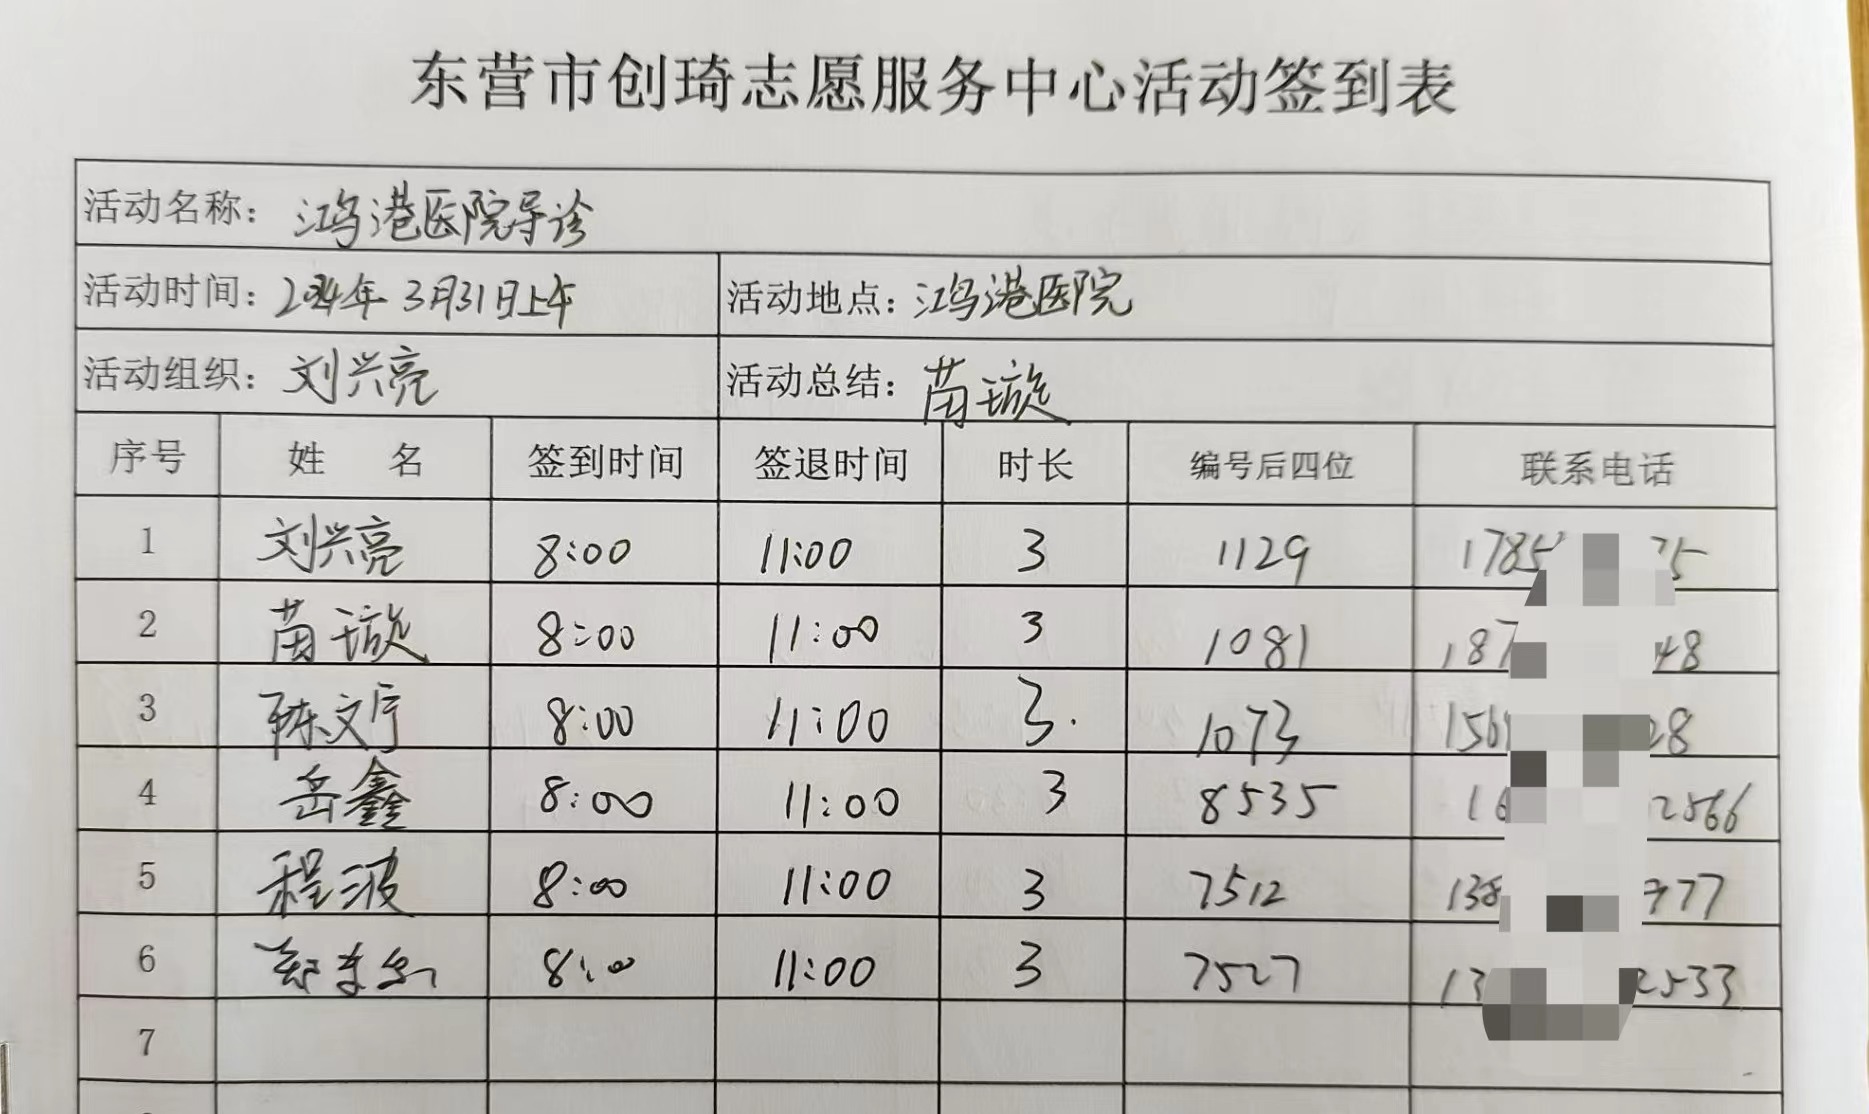 东营市创琦志愿服务中心活动签到表
活动名称：鸿港医院导诊
活动时间：2024年3月31日上午 活动地点：鸿港医院
活动组织：刘兴亮 活动总结：苗璇
序号 姓名 签到时间 签退时间 时长 编号后四位 联系电话
1 刘兴亮 8:00 11:00 3 1129 1785 75
2 苗璇 8:00 11:00 3 1081 187 48
3 陈文宁 8:00 11:00 3. 1073 156 28
4 岳鑫 8:00 11:00 3 8535 16 2566
5 程波 8:00 11:00 3 7512 138 977
6 8:00 11:00 3 7527 13 2533
7